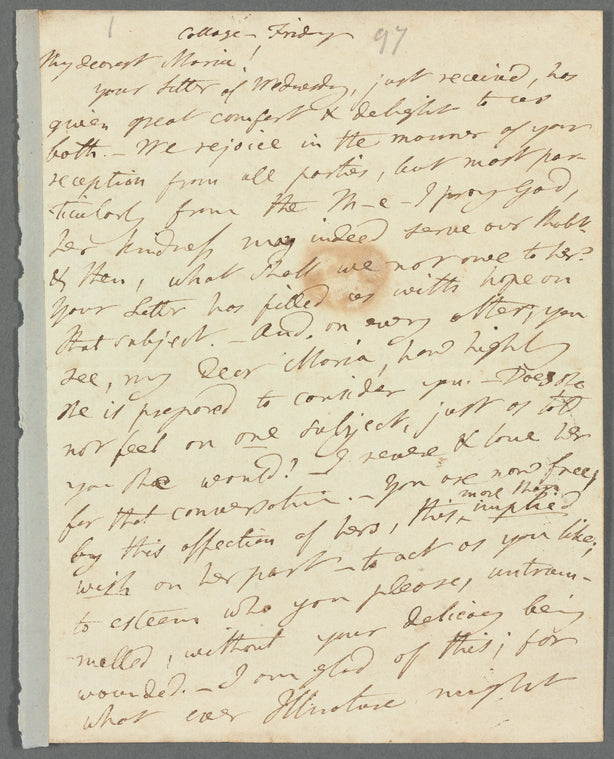 1
Cottage - Friday
97
My dearest Maria!
your letter of Wednesday, just received, has
given great comfort & delight to us
both. - We rejoice in the manner of your
reception from all parties, but most par-
ticularly from the M-e - I pray God,
her kindness may indeed serve our
& then, what shall we not owe to her?
Your letter has filled us with hope on
that subject. - And, on every other, you
see, my dear Maria, how highly
she is prepared to consider you. - Does she
not feel on one subject, just as I told
you she would? - I revere & love her
for that conversation. - You are now free,
by this affection of hers, this more than implied
wish on her part - to act as you like;
to esteem who you please, untram-
melled, without your delicacy being
wounded. - I am glad of this; for
what ever Illnature might